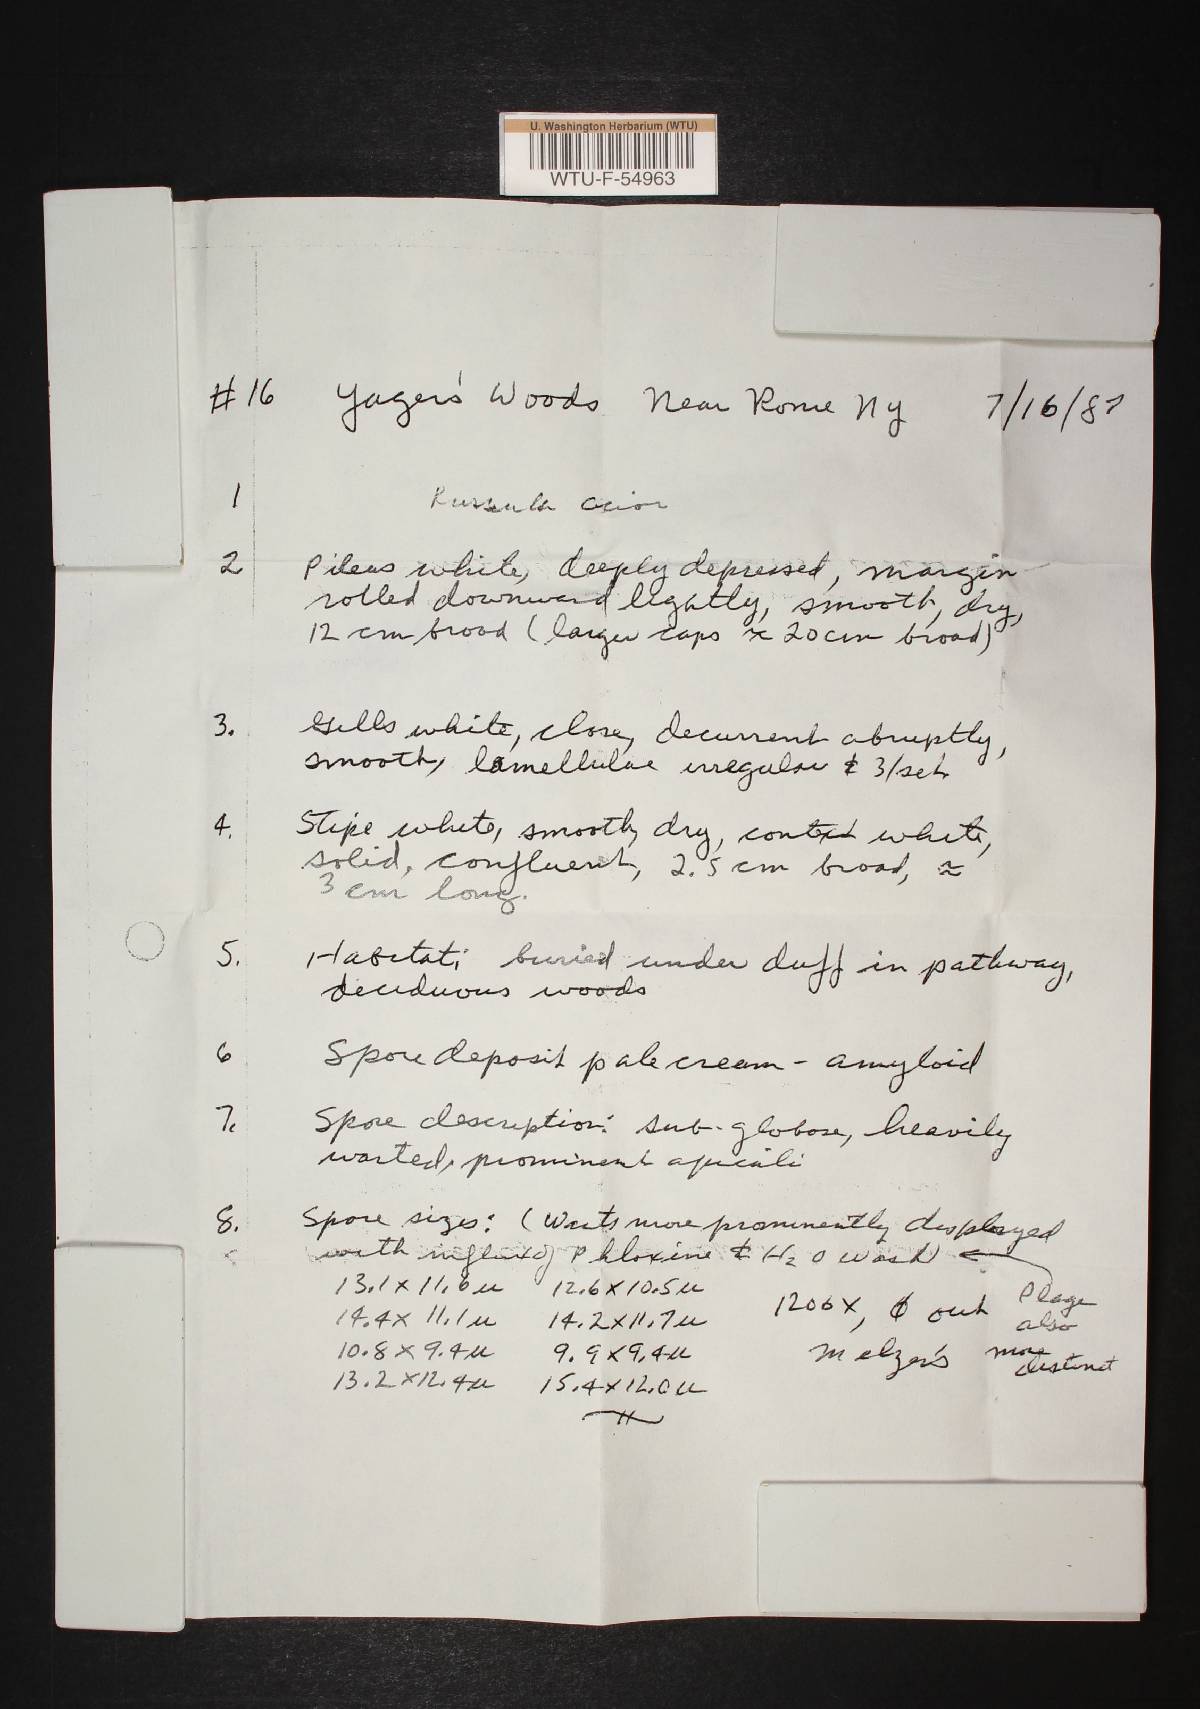 U. Washington Herbarium (WTU)
WTU-F-54963
#16 Yager's Woods Near Rome Ny 7/16/87
1 Russula
2 Pileus white, deeply depressed, margin
rolled downward lightly, smooth, dry,
12 cm broad (larger caps ≈ 20cm broad)
3. Gills white, close, decurrent abruptly,
smooth, lamellulae irregular & 3/set
4. Stipe white, smooth, dry, context white,
solid, confluent, 2.5 cm broad, ≈
3 cm long.
5. Habitat: buried under duff in pathway,
deciduous woods
6 Spore deposit pale cream - amyloid
7. Spore description: sub-globose, heavily
warted, prominent apiculi
8. Spore sizes: (Warts more prominently displayed
with influx of Phloxine & H2O wash)
13.1 x 11.6 u 12.6 x 10.5 u
14.4 x 11.1 u 14.2 x 11.7 u 1206x, out Plage
also
10.8 x 9.4 u 9.9 x 9.4 u Melzer's more
distinct
13.2 x 12.4 u 15.4 x 12.0 u